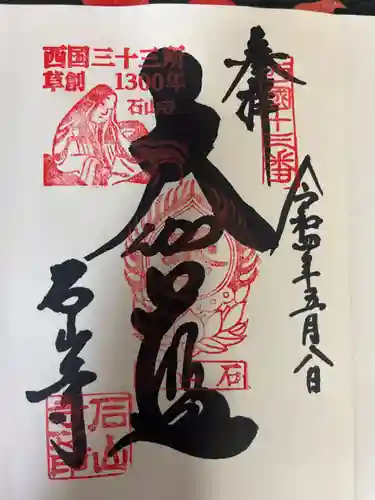 奉拝
西国十三番
令和四年五月八日
西国三十三所
草創 1300年
石山寺
大伽藍
石山寺
石山
寺印